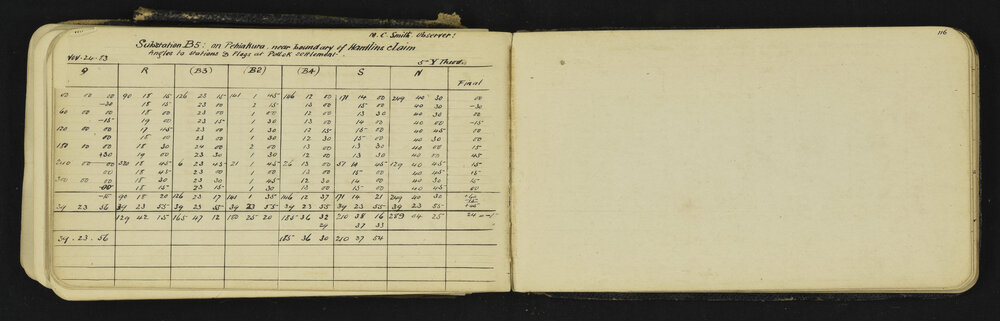 M.C. Smith Observer:
Substation B5: on Pehiakura near boundary of Hamlins claim
Angles to stations & Flags at Pollok settlement.
Nov. 24. 83
R (B3) (B2) (B4) S N
Final
00 00 00 90 18 15 126 23 15 141 1 45 146 12 00 171 14 00 249 40 30 00
-30 18 15 23 00 2 15 13 00 15 00 40 30 -30
60 00 00 18 00 23 00 1 00 12 00 13 30 40 30 00
-15 19 00 23 15 1 30 13 00 14 00 40 45 -15
120 00 00 17 45 23 00 1 30 12 15 15 00 40 45 00
00 18 00 23 00 1 30 12 30 15 00 40 30 00
180 00 00 18 30 24 00 2 00 13 00 13 30 40 00 15
+30 19 00 23 30 1 30 12 00 13 30 40 00 45
240 00 00 18 45 6 23 45 21 1 45 26 13 00 51 14 45 129 40 45 15
00 18 45 23 00 1 00 13 00 15 00 40 45 15
300 00 00 18 30 23 30 1 45 12 30 14 00 40 30 15
18 15 23 15 1 30 13 00 15 00 40 45 00
-15 90 18 20 126 23 17 141 1 35 146 12 37 171 14 21 249 40 30
39 23 56 39 23 55 39 23 55 39 23 55 39 23 55 39 23 55 39 23 55
129 42 15 165 47 12 180 25 30 185 36 32 210 38 16 289 04 25
29 37 33
39. 23. 56 185 36 30 210 37 54
116